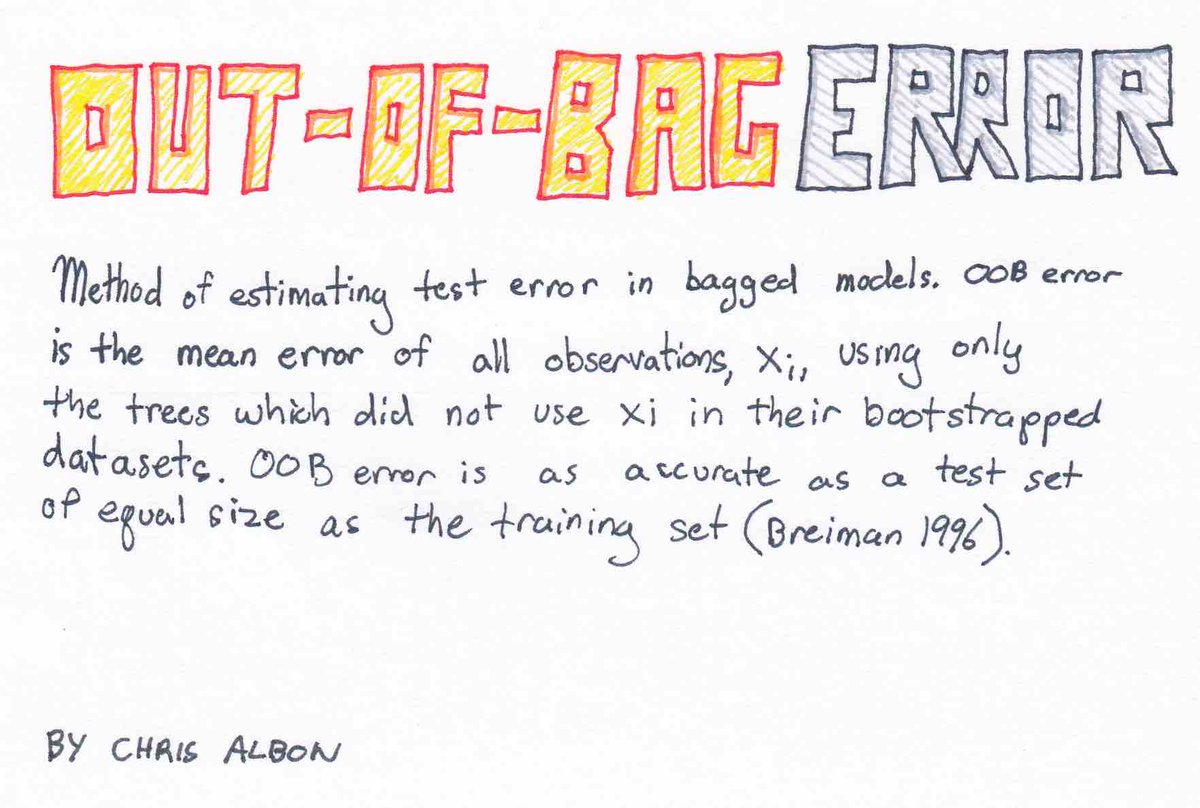 OUT-OF-BAG ERROR
Method of estimating test error in bagged models. OOB error
is the mean error of all observations, Xi, using only
the trees which did not use xi in their bootstrapped
datasets. OOB error is as accurate as a test set
of equal size as the training set (Breiman 1996).
BY CHRIS ALBON